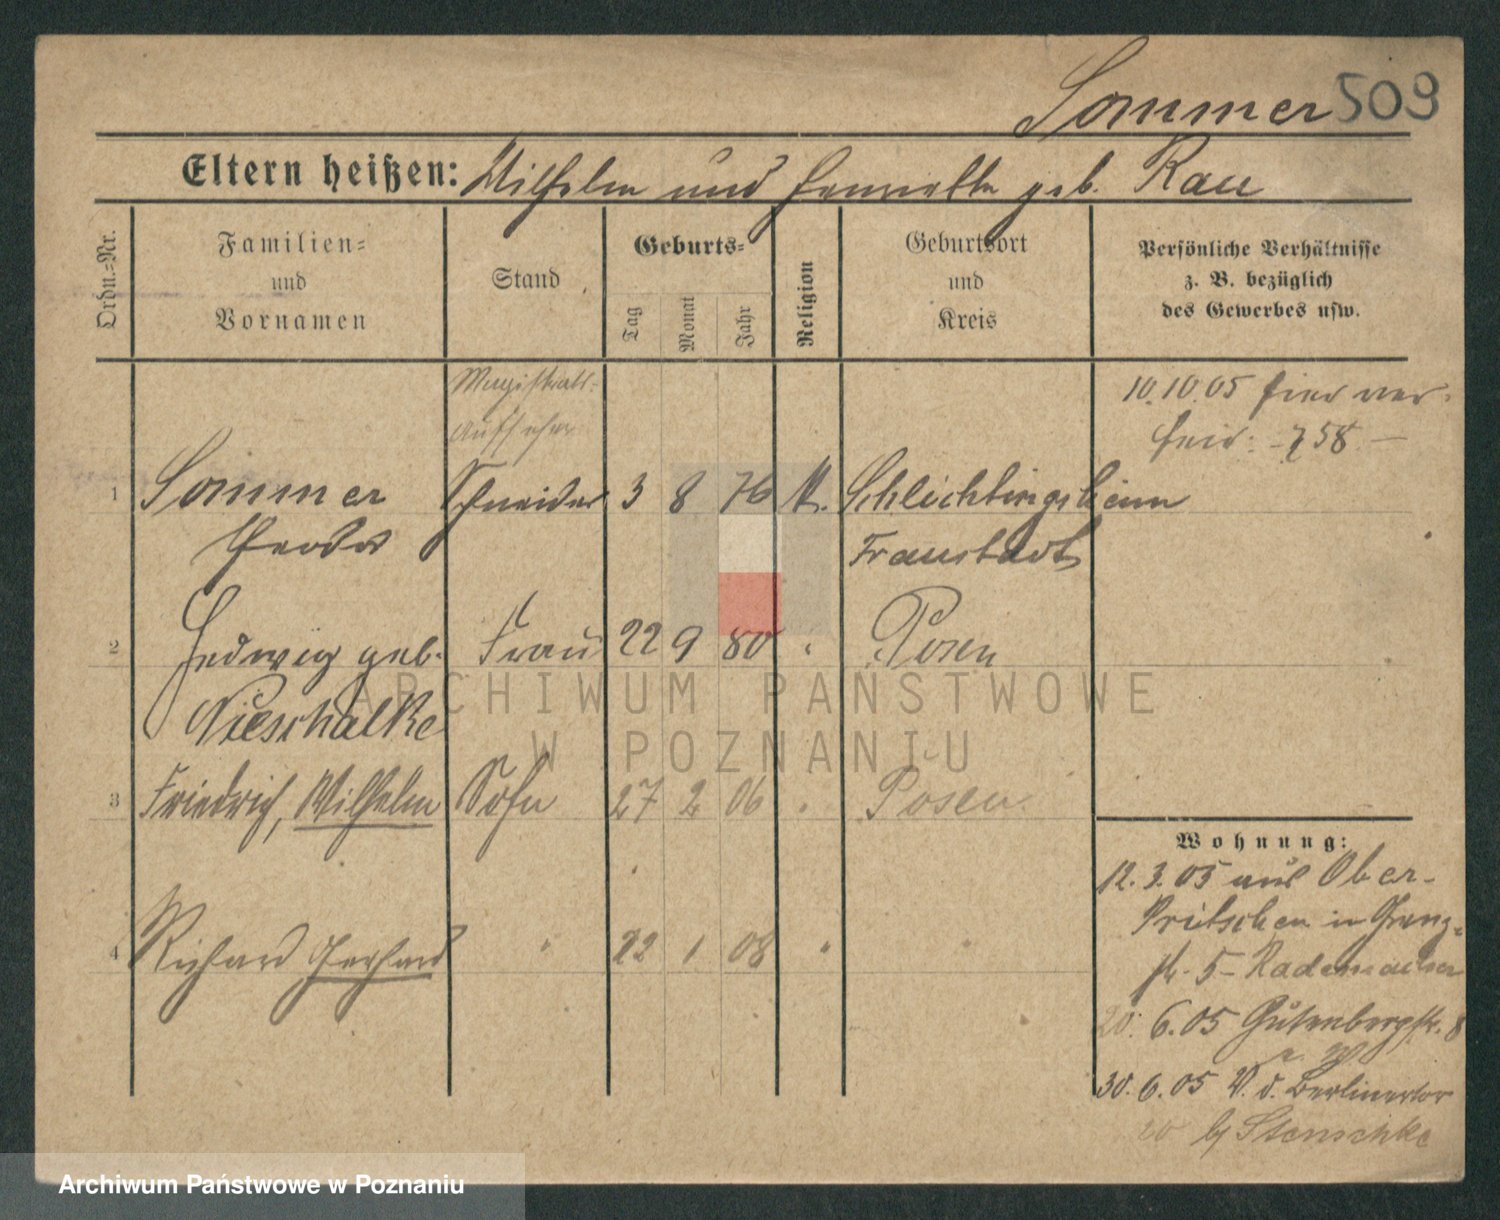 Sommer 509
Eltern heißen: Wilhelm und Henriette geb. Rau
Ordn.-Nr.
Familien-
und
Vornamen
Stand
Geburts-
Tag
Monat
Jahr
Religion
Geburtsort
und
Kreis
Persönliche Verhältnisse
z. B. bezüglich
des Gewerbes usw.
Magistrats-
Aufseher
10.10.05 hier ver-
heir: 758
1 Sommer Schneider 3 8 76 Schlichtingsheim
Theodor Fraustadt
2 Hedwig geb. Frau 22 9 80 Posen
Nieschalke
3 Friedrich, Wilhelm Sohn 27 2 06 Posen
4 Richard Gerhard " 22 1 08 " "
Wohnung:
12.3.05 aus Ober-
Pritschen in Grenz-
str. 5 - Rademacher
20. 6.05 Gutenbergstr. 8
30.6.05 V. d. Berlinertor
20 b/ Stenschke
ARCHIWUM PAŃSTWOWE
W POZNANIU
Archiwum Państwowe w Poznaniu